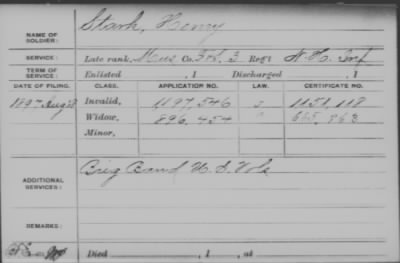 NAME OF SOLDIER: Stark, Henry
SERVICE: Late rank, Mus Co. 3 Reg't N.H. Inf
TERM OF SERVICE: Enlisted , 1 Discharged , 1
DATE OF FILING. CLASS. APPLICATION NO. LAW. CERTIFICATE NO.
1897 Aug 28 Invalid, 1,197,546 1151,118
Widow, 896,454 665,863
Minor,
ADDITIONAL SERVICES: Brig Band U.S. Vols
REMARKS:
Died , 1 , at